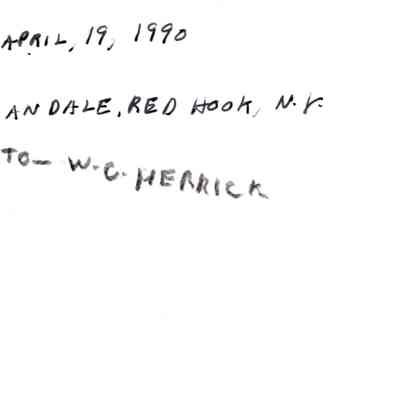 APRIL, 19, 1990
ANDALE, RED HOOK, N.Y.
TO— W.C. HERRICK